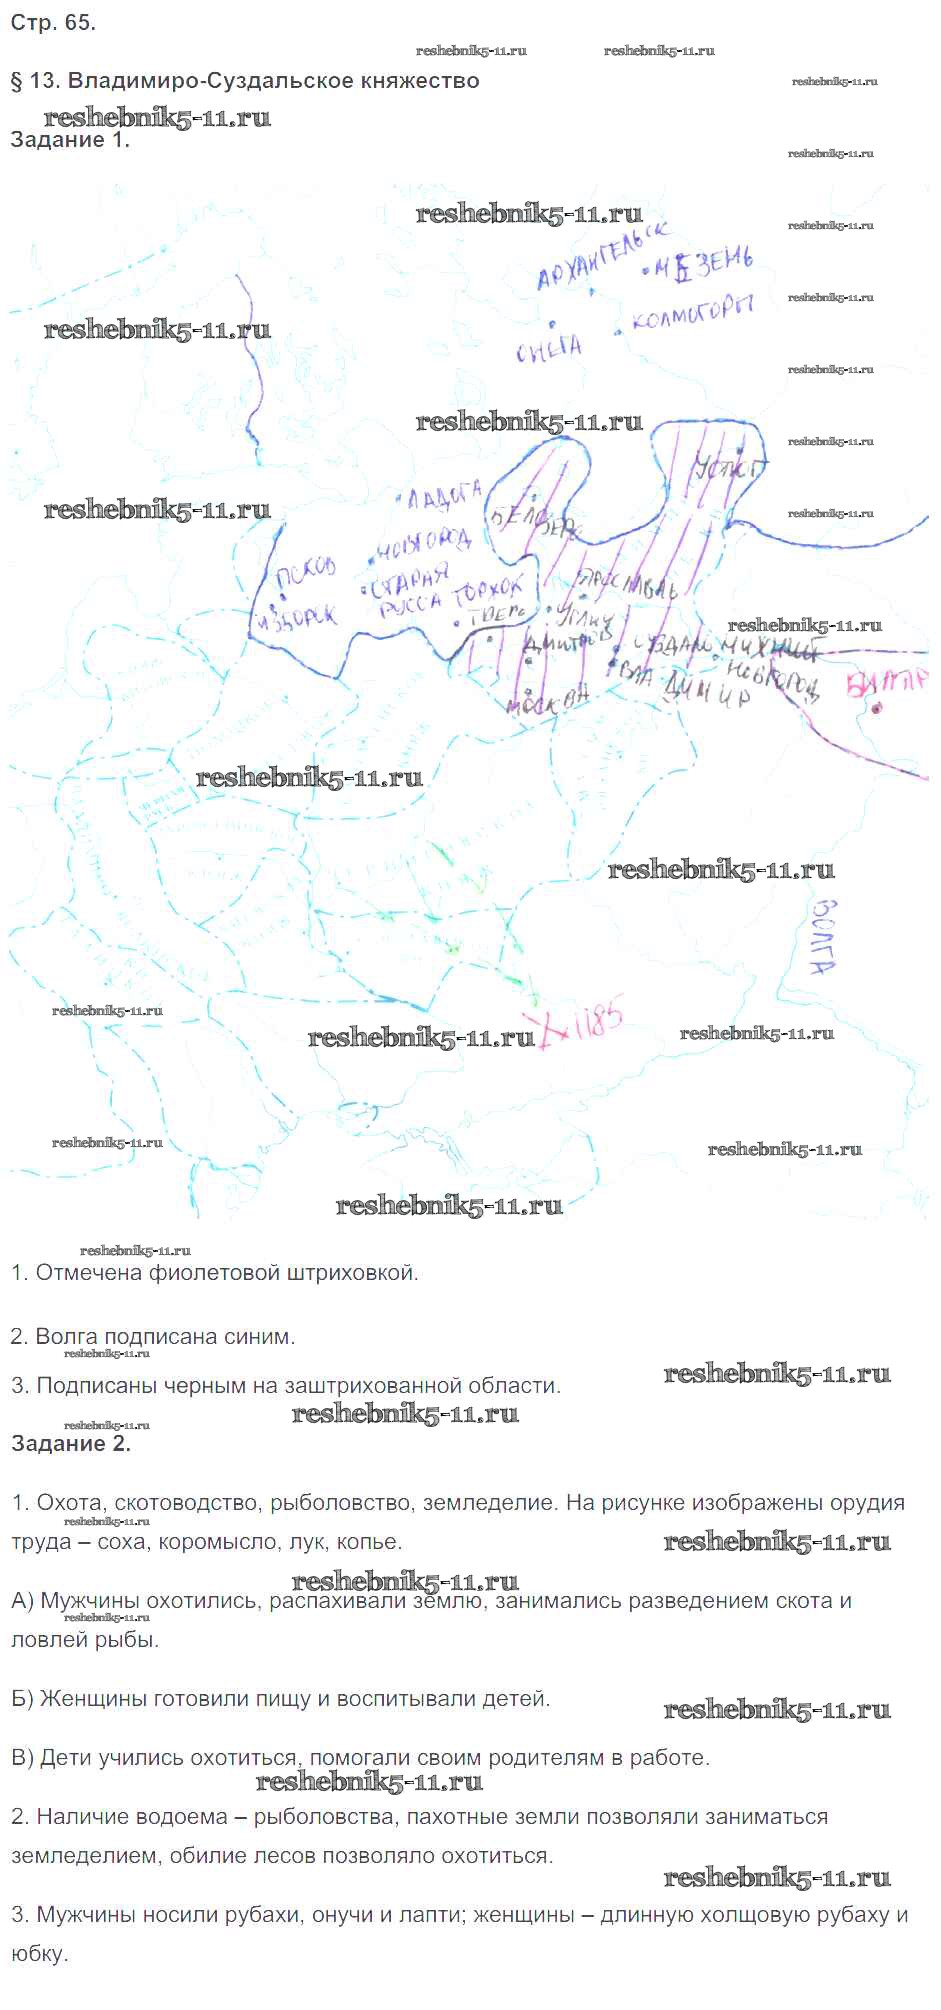 Стр. 65.
reshebnik5-11.ru reshebnik5-11.ru
§ 13. Владимиро-Суздальское княжество
reshebnik5-11.ru
reshebnik5-11.ru
Задание 1.
reshebnik5-11.ru
reshebnik5-11.ru
reshebnik5-11.ru
АРХАНГЕЛЬСК
МЕЗЕНЬ
reshebnik5-11.ru
КОЛМОГОРЫ
reshebnik5-11.ru
ОНЕГА
reshebnik5-11.ru
reshebnik5-11.ru
reshebnik5-11.ru
УСТЮГ
ЛАДОГА
reshebnik5-11.ru
reshebnik5-11.ru
БЕЛО
ЗЕРО
НОВГОРОД
ПСКОВ
СТАРАЯ
РУССА ТОРЖОК
ЯРОСЛАВЛЬ
ИЗБОРСК
ТВЕРЬ
УГЛИЧ
reshebnik5-11.ru
ДМИТРОВ
СУЗДАЛЬ
НИЖНИЙ
НОВГОРОД
ВЛАДИМИР
МОСКВА
БИЛЯР
reshebnik5-11.ru
reshebnik5-11.ru
ВОЛГА
reshebnik5-11.ru
1185
reshebnik5-11.ru
reshebnik5-11.ru
reshebnik5-11.ru
reshebnik5-11.ru
reshebnik5-11.ru
reshebnik5-11.ru
1. Отмечена фиолетовой штриховкой.
2. Волга подписана синим.
reshebnik5-11.ru
reshebnik5-11.ru
3. Подписаны черным на заштрихованной области.
reshebnik5-11.ru
reshebnik5-11.ru
Задание 2.
1. Охота, скотоводство, рыболовство, земледелие. На рисунке изображены орудия
reshebnik5-11.ru
труда – соха, коромысло, лук, копье.
reshebnik5-11.ru
reshebnik5-11.ru
А) Мужчины охотились, распахивали землю, занимались разведением скота и
reshebnik5-11.ru
ловлей рыбы.
Б) Женщины готовили пищу и воспитывали детей.
reshebnik5-11.ru
В) Дети учились охотиться, помогали своим родителям в работе.
reshebnik5-11.ru
2. Наличие водоема – рыболовства, пахотные земли позволяли заниматься
земледелием, обилие лесов позволяло охотиться.
reshebnik5-11.ru
3. Мужчины носили рубахи, онучи и лапти; женщины – длинную холщовую рубаху и
юбку.